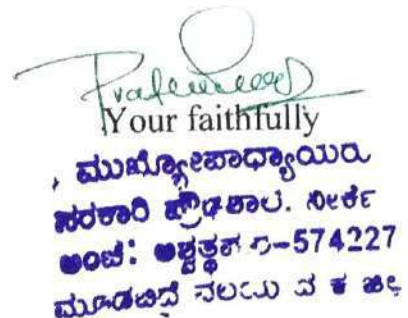 Your faithfully
ಮುಖ್ಯೋಪಾಧ್ಯಾಯರು
ಸರಕಾರಿ ಪ್ರೌಢಶಾಲೆ. ನೀರ್ಕೆ
ಅಂಚೆ: ಅಶ್ವತ್ಥಪುರ-574227
ಮೂಡಬಿದ್ರೆ ವಲಯ ದ ಕ ಜಿಲ್ಲೆ